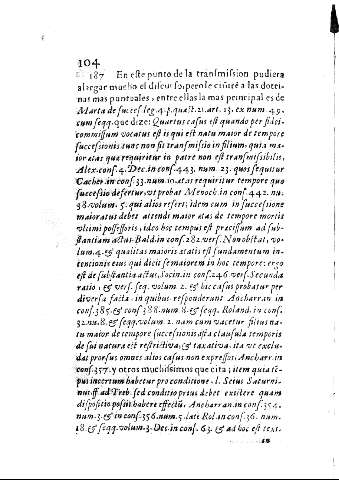 104
187 En este punto de la transmission pudiera
alargar mucho el discurso pero le ciñirè a las dotri-
nas mas puntuales, entre ellas la mas principal es de
Marta de succes. leg. 4. p. quæst. 21. art. 13. ex num. 49.
cum seqq. que dize: Quartus casus est quando per fidei-
commissum vocatus est is qui est natu maior de tempore
successionis tunc non fit transmissio in filium, quia ma-
ior ætas quæ requiritur in patre non est transmissibilis,
Alex. cons. 4. Dec. in cons. 443. num. 23. quos sequitur
Cacher. in cons. 33. num. in ætas requiritur tempore quo
successio defertur, vt probat Menoch. in cons. 442. nu.
38. volum. 5. qui alios refert; idem cum in successione
maioratus debet attendi maior ætas de tempore mortis
vltimi possessoris, ideo hoc tempus est præcissum ad sub-
stantiam actus. Bald. in cons. 282. vers. Non obstat, vo-
lum. 4. & qualitas maioris ætatis est fundamentum in-
tentionis eius qui dicit se maiorem in hoc tempore: ergo
est de substantia actus, Socin. in cons. 246. vers. Secunda
ratio, & vers. seq. volum. 2. & hic casus probatur per
diversa facta, in quibus responderunt Ancharran. in
cons. 385. & cons. 388. num. 8. & seqq. Roland. in cons.
32. nu. 8. & seqq. volum. 2. nam cum vocetur filius na-
tu maior de tempore successionis ista clausula temporis
de sui natura est restrictiva, & taxativa, ita vt exclu-
dat prorsus omnes alios casus non expressos. Ancharr. in
cons. 357. y otros muchissimos que cita; item quia tẽ-
pus incertum habetur pro conditione, l. Seius Saturni-
nus. ff. ad Treb. sed conditio prius debet existere quam
dispositio possit habere effectũ. Ancharran. in cons. 354.
num. 3. & in cons. 356. num. 5. late Rol. in cons. 36. num.
18. & seqq. volum. 3. Dec. in cons. 63. & ad hoc est text.
in